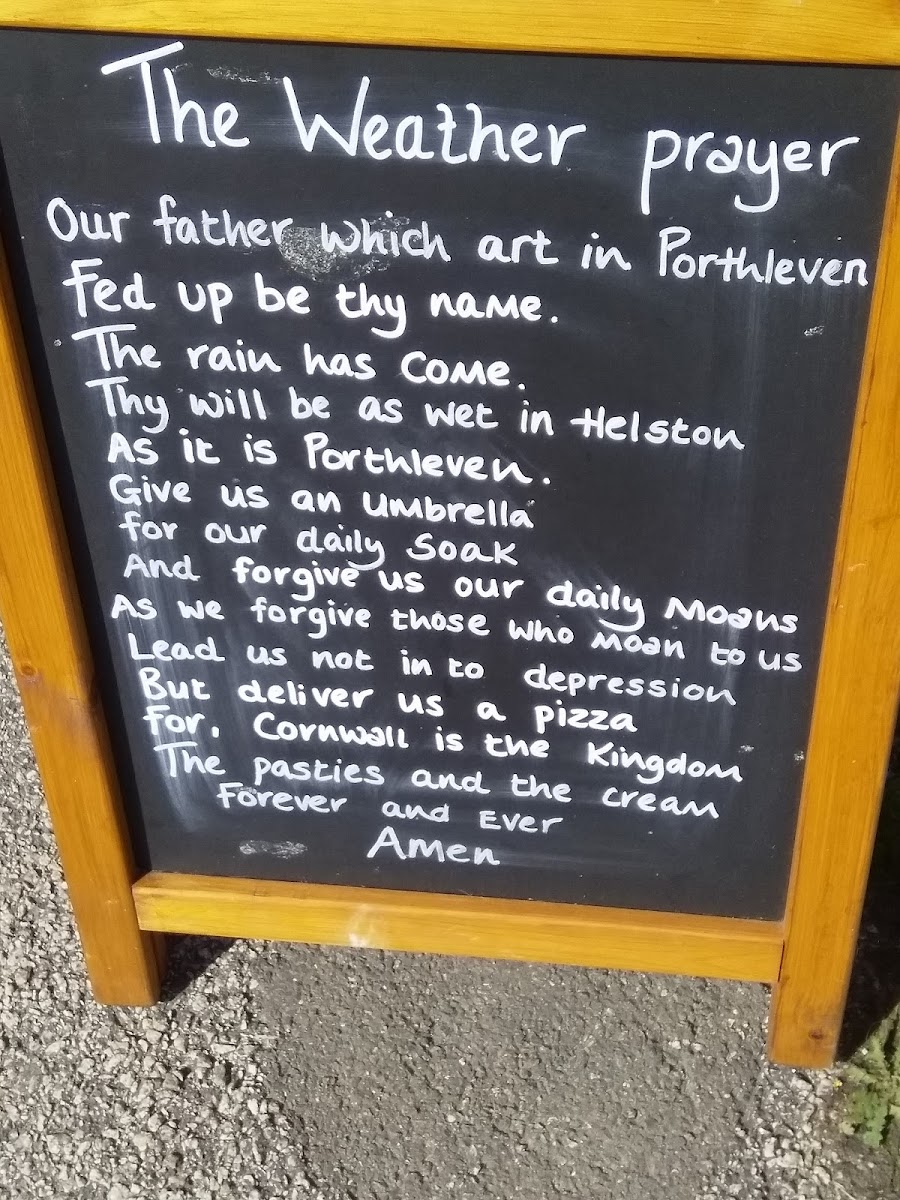 The Weather prayer
Our father which art in Porthleven
Fed up be thy name.
The rain has come.
Thy will be as wet in Helston
As it is Porthleven.
Give us an umbrella
for our daily soak
And forgive us our daily Moans
As we forgive those who moan to us
Lead us not in to depression
But deliver us a pizza
For, Cornwall is the Kingdom
The pasties and the cream
Forever and Ever
Amen